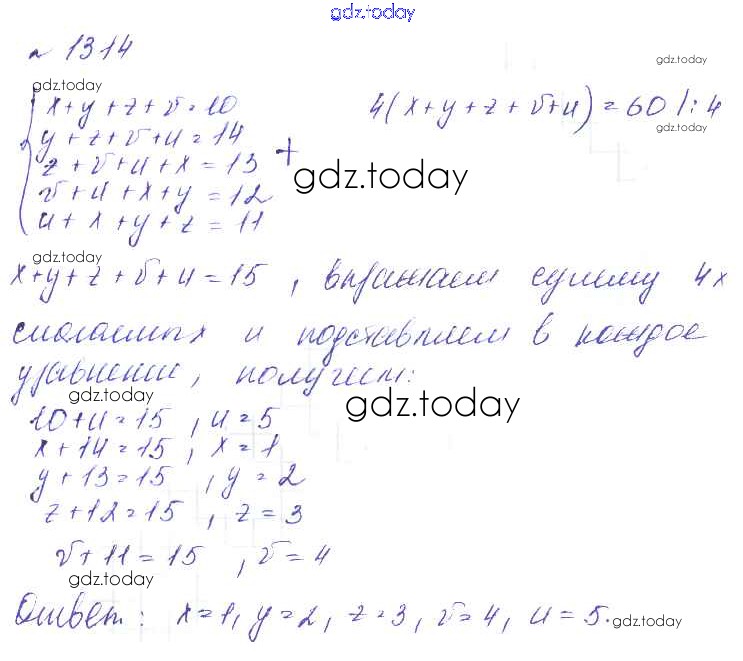 gdz.today
№ 1314
gdz.today
gdz.today
x+y+z+v=10
4(x+y+z+v+u)=60 /:4
y+z+v+u=14
gdz.today
z+v+u+x=13 +
v+u+x+y=12
gdz.today
u+x+y+z=11
gdz.today
x+y+z+v+u=15, выражаем сумму 4х
слагаемых и подставляем в каждое
уравнение, получим:
gdz.today
10+u=15, u=5
gdz.today
x+14=15, x=1
y+13=15, y=2
z+12=15, z=3
gdz.today
v+11=15, v=4
gdz.today
Ответ: x=1, y=2, z=3, v=4, u=5.
gdz.today